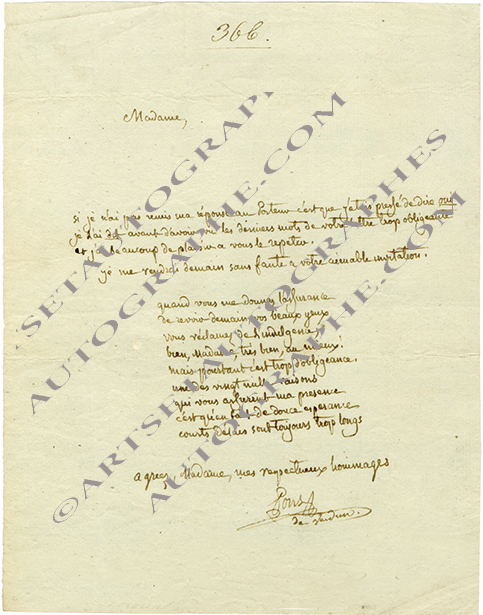 366.
Madame,
si je n'ai pas remis ma réponse au Porteur c'est que j'étois pressé de dire oui
je l'ai dit avant d'avoir vu les derniers mots de votre lettre trop obligeante
et j'ai beaucoup de plaisir a vous le repeter.
je me rendrai demain sans faute a votre aimable invitation.
quand vous me donnez l'assurance
de revoir demain vos beaux yeux
vous réclamez de l'indulgence,
bien, Madame, très bien, au mieux!
mais pourtant c'est trop d'obligeance.
une des vingt mille raisons
qui vous assurent ma presence
c'est qu'en fait de douce esperance
courts délais sont toujours trop longs
agréez Madame, mes respectueux hommages
Pons
de Verdun.
©ARTSETAUTOGRAPHES
SETAUTOGRAPHE.COM
ARTSETAUTOGRAPHES
AUTOGRAPHE.COM